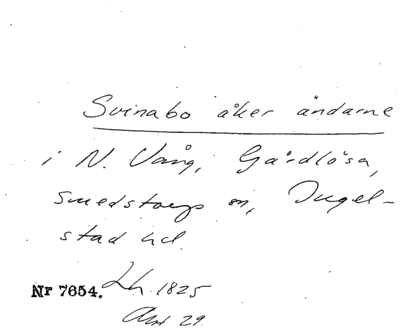 Svinabo åker ändarne
i N. Vång, Gårdlösa,
Smedstorps sn, Ingel-
stad hd.
Nr 7654. Lh. 1825
Akt 29.